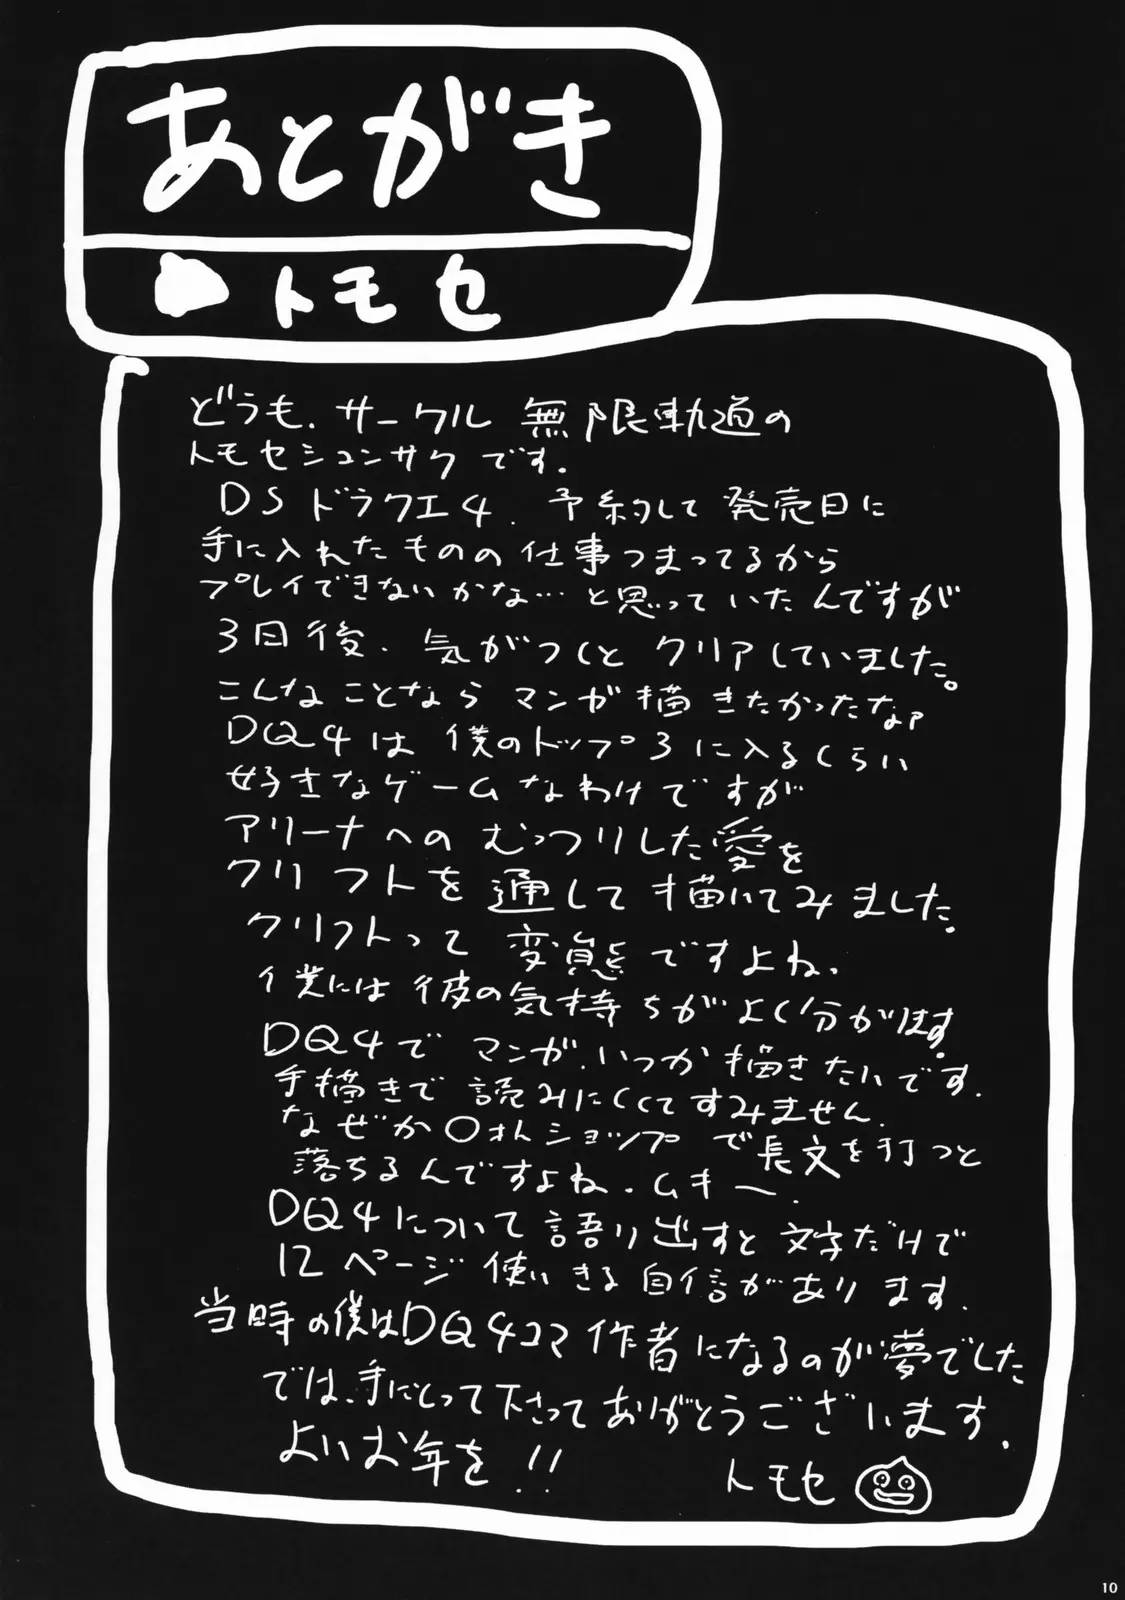 あとがき
トモセ
どうも、サークル 無限軌道の
トモセシュンサクです.
DSドラクエ4. 予約して発売日に
手に入れたものの仕事つまってるから
プレイできないかな…と思っていたんですが
3日後、気がつくとクリアしていました。
こんなことなら マンガ描きたかったなァ
DQ4は僕のトップ3に入るくらい
好きなゲームなわけですが
アリーナへのむっつりした愛を
クリフトを通して描いてみました.
クリフトって変態ですよね.
僕には彼の気持ちがよく分かります.
DQ4でマンガ、いつか描きたいです.
手描きで読みにくくてすみません.
なぜか〇ォトショップで長文を打つと
落ちるんですよね.ムキー.
DQ4について語り出すと文字だけで
12ページ使いきる自信があります.
当時の僕はDQ4コマ作者になるのが夢でした
では、手にとって下さってありがとうございます.
よいお年を!!
トモセ
10